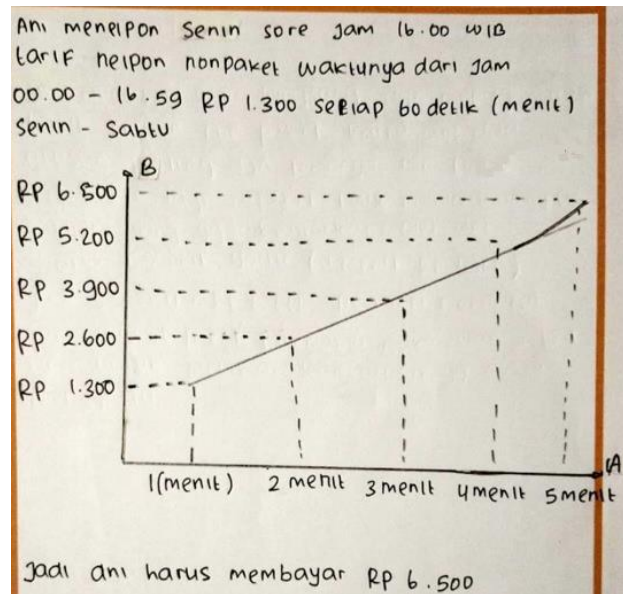 Ani menelpon Senin sore jam 16.00 WIB
tarif nelpon nonpaket waktunya dari jam
00.00 - 16.59 RP 1.300 setiap 60 detik (menit)
Senin - Sabtu
B
RP 6.500
RP 5.200
RP 3.900
RP 2.600
RP 1.300
A
1 (menit) 2 menit 3 menit 4 menit 5 menit
Jadi ani harus membayar RP 6.500